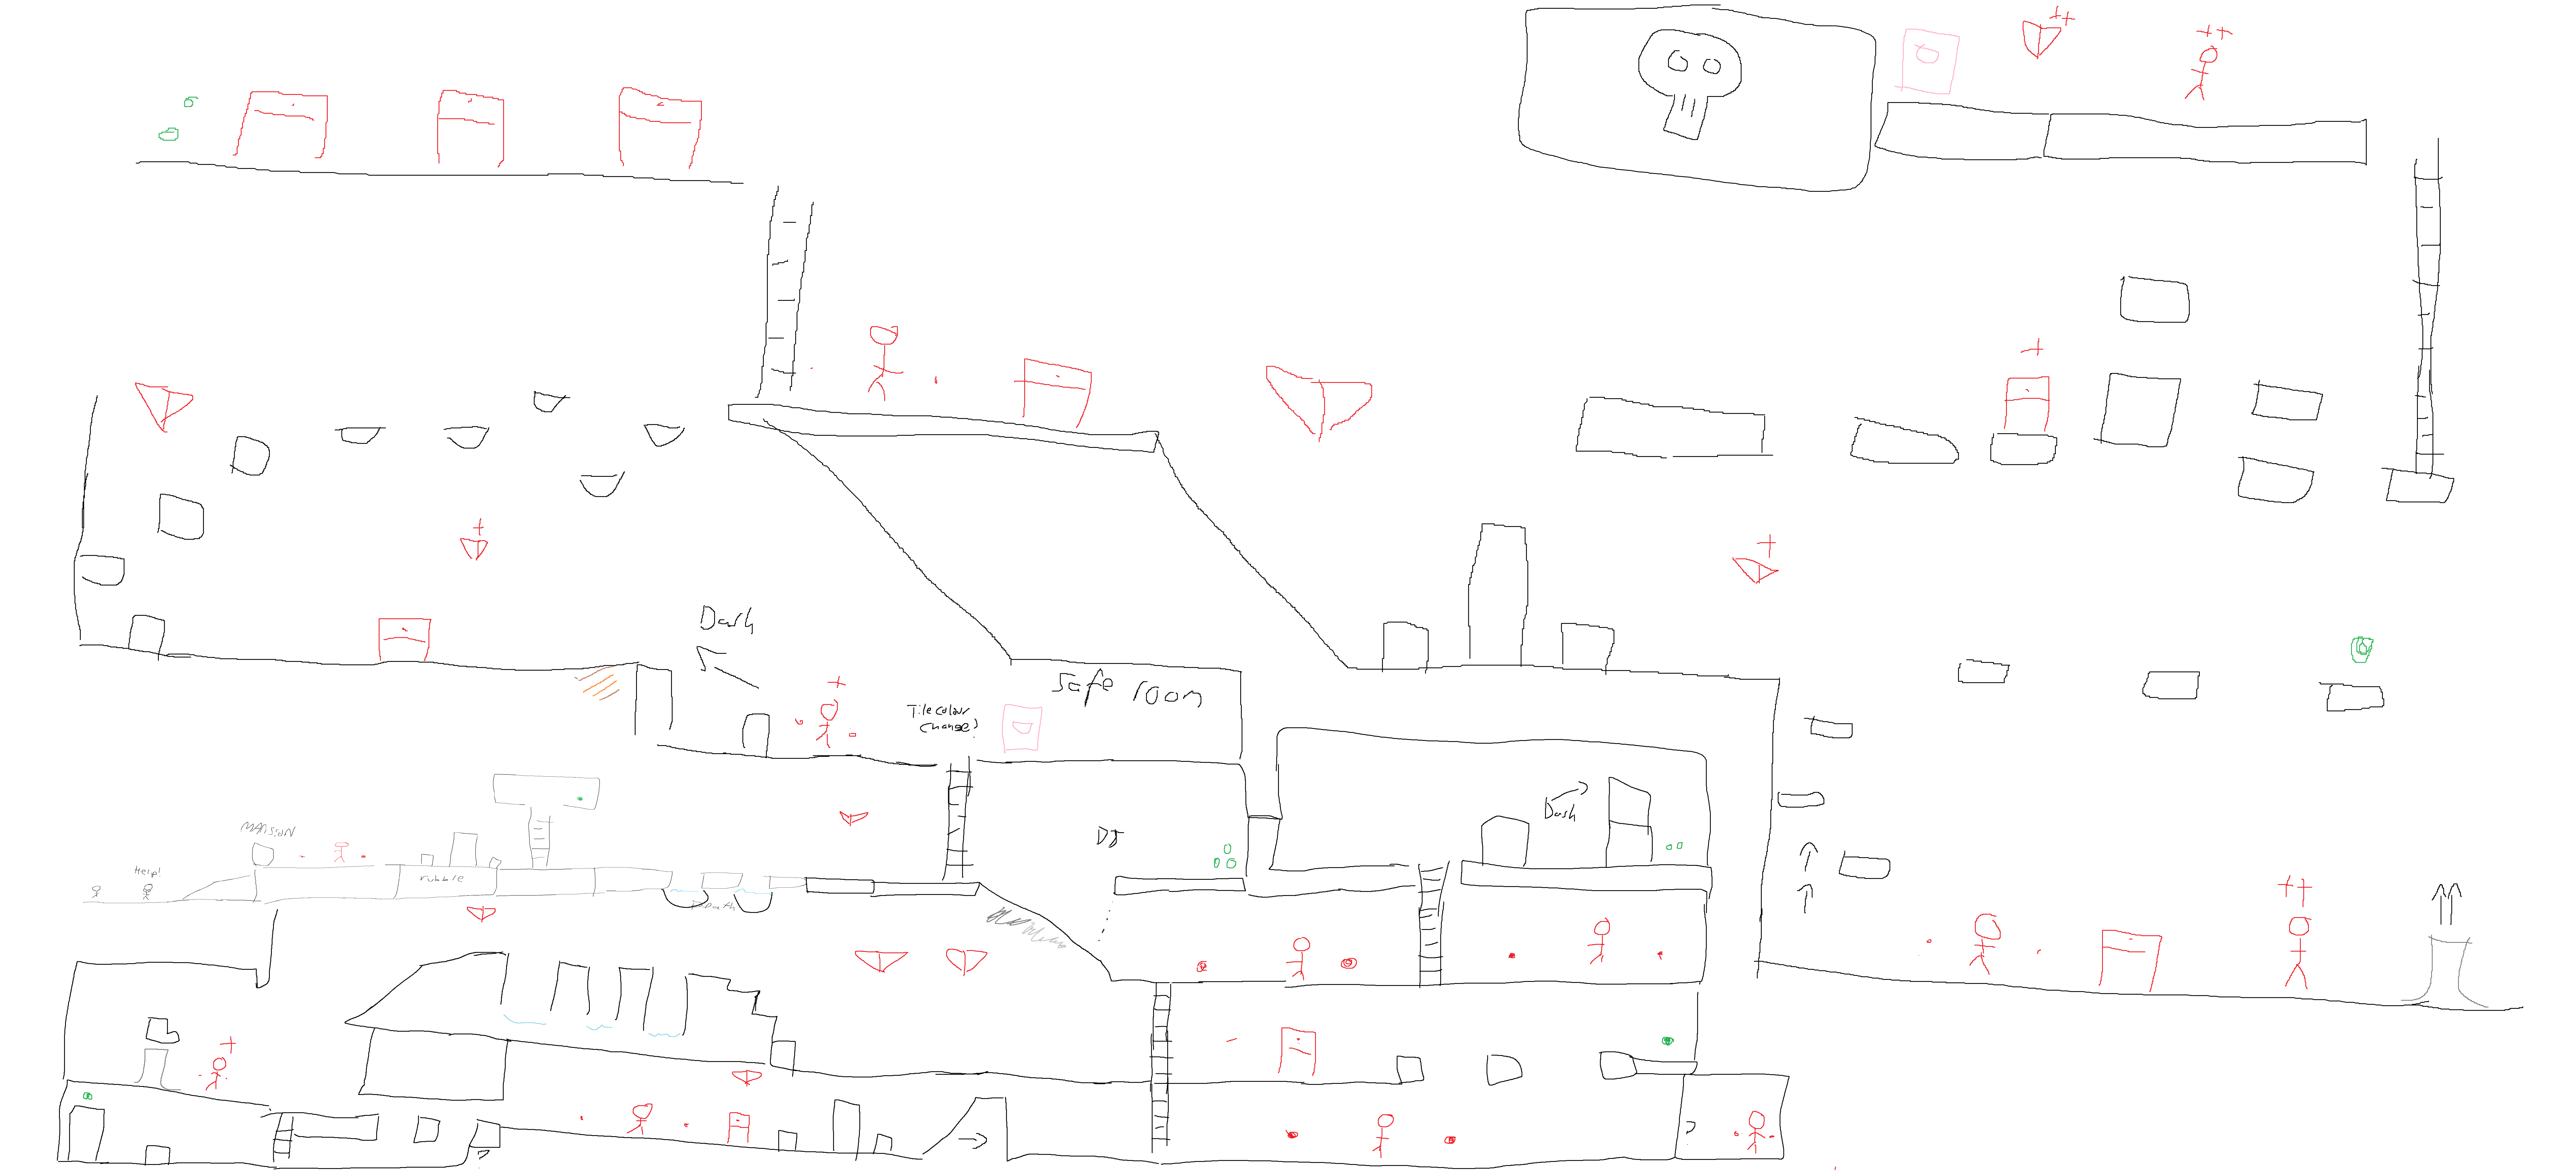 Dash
Safe room
Tile colour
change?
Dash
DJ
MANSION
Help!
rubble
Death
?
?